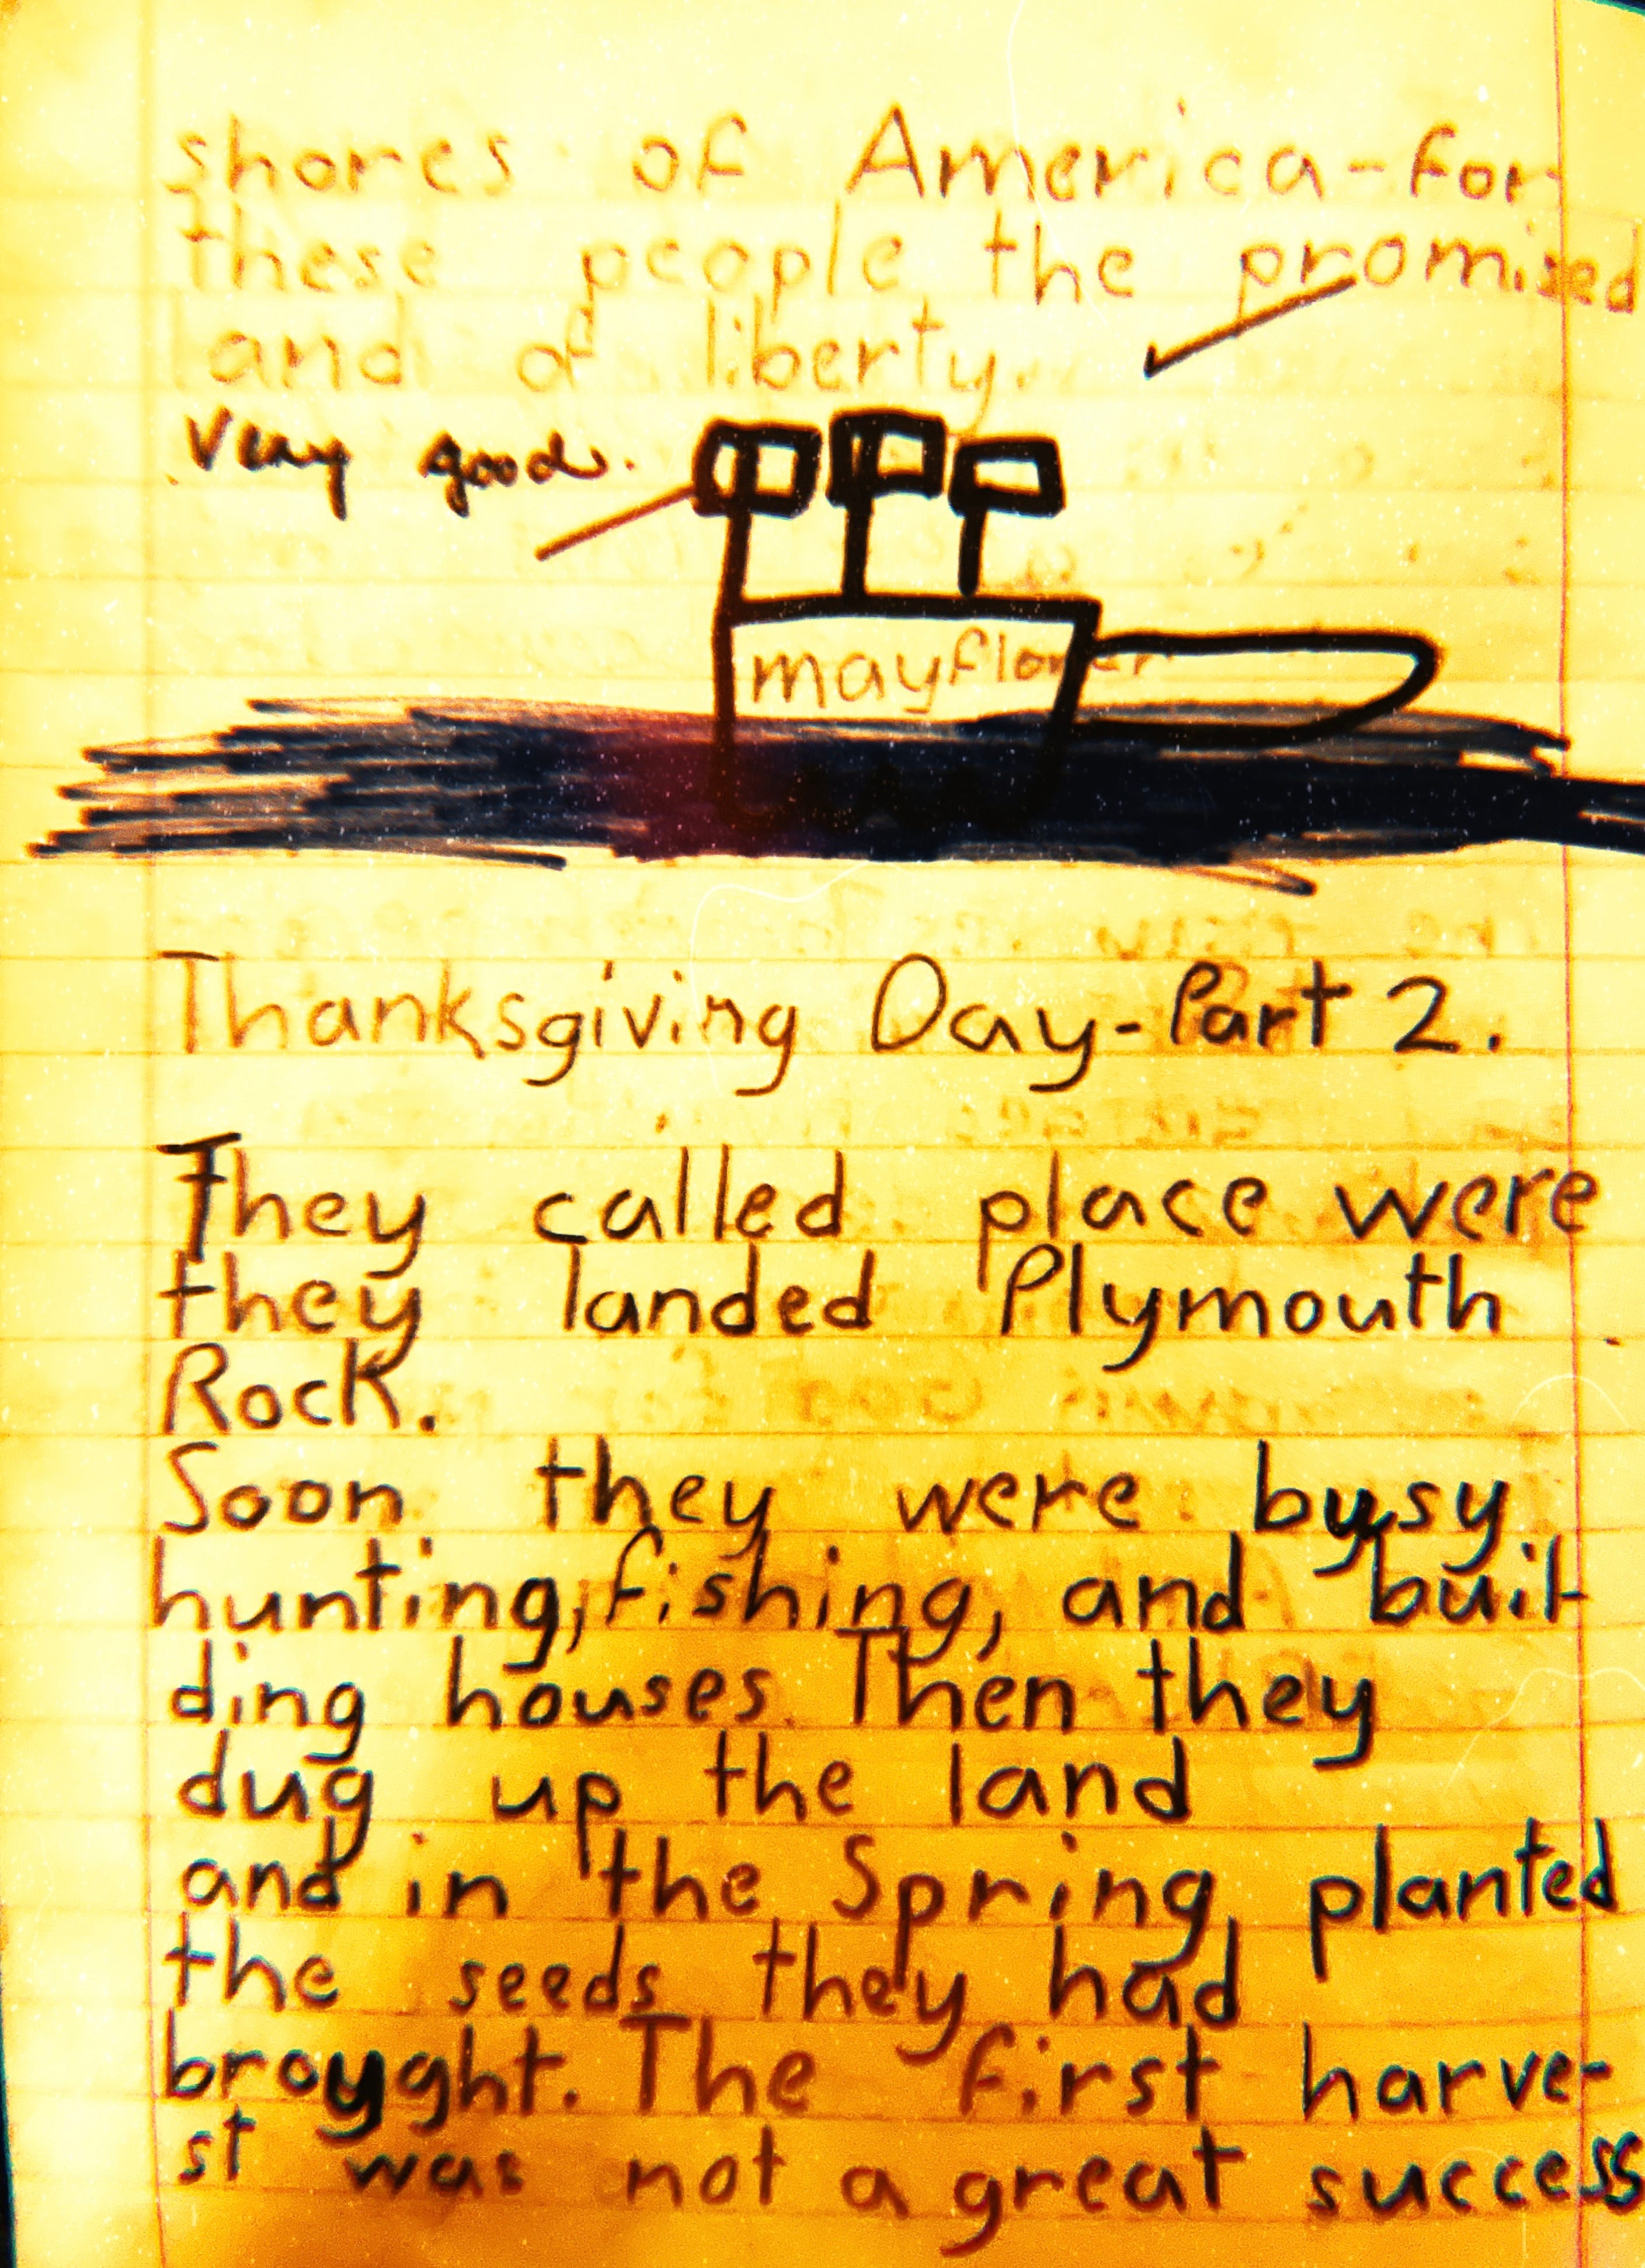 shores of America-for
these people the promised
land of liberty.
Very good.
mayflower
Thanksgiving Day-Part 2.
They called place were
they landed Plymouth
Rock.
Soon they were busy
hunting, fishing, and buil-
ding houses. Then they
dug up the land
and in the Spring, planted
the seeds they had
brought. The first harve-
st was not a great success